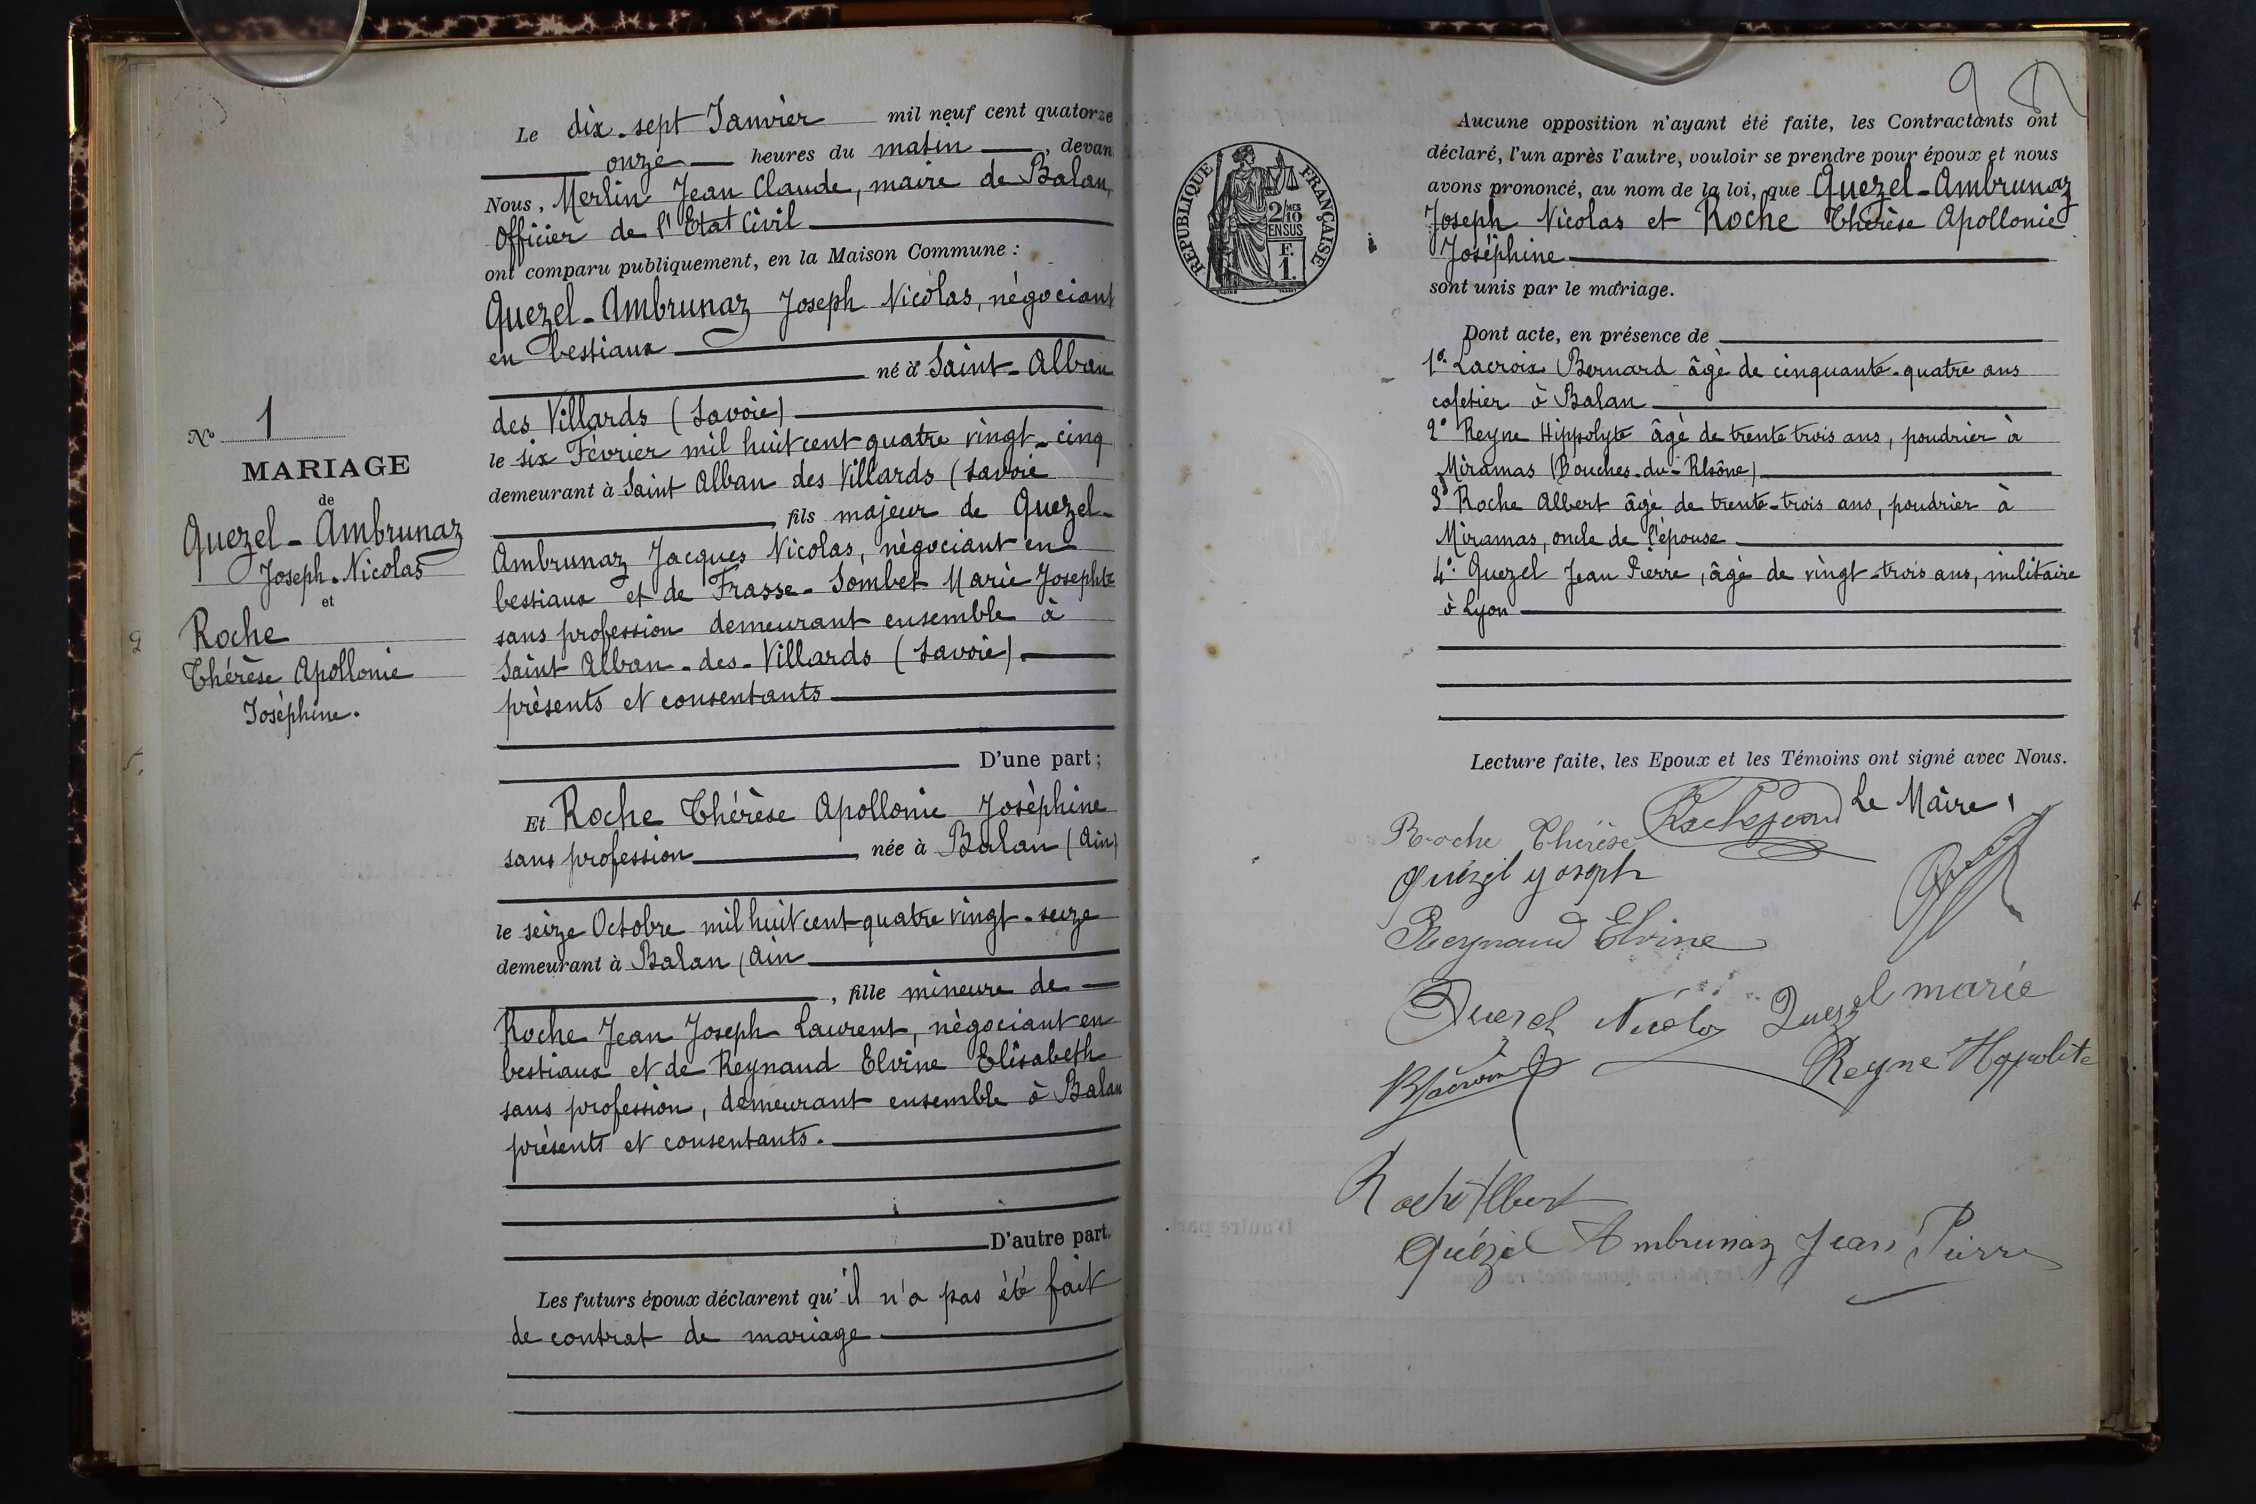 Le dix-sept Janvier mil neuf cent quatorze
onze heures du matin, devan
Nous, Merlin Jean Claude, maire de Balan,
Officier de l'Etat Civil
ont comparu publiquement, en la Maison Commune :
Quezel-Ambrunaz Joseph Nicolas, négociant
en bestiaux
né à Saint-Alban
des Villards (Savoie)
le six Février mil huit cent quatre vingt-cinq
demeurant à Saint Alban des Villards (Savoie
fils majeur de Quezel-
Ambrunaz Jacques Nicolas, négociant en
bestiaux et de Frasse-Sombet Marie Josephte
sans profession demeurant ensemble à
Saint Alban-des-Villards (Savoie).
présents et consentants
D'une part ;
No 1
MARIAGE
de
Quezel-Ambrunaz
Joseph-Nicolas
et
Roche
Thérèse Apollonie
Joséphine.
Et Roche Thérèse Apollonie Joséphine
sans profession, née à Balan (Ain)
le seize Octobre mil huit cent quatre vingt-seize
demeurant à Balan (Ain
, fille mineure de
Roche Jean Joseph Laurent, négociant en
bestiaux et de Reynaud Elvine Elisabeth
sans profession, demeurant ensemble à Balan
présents et consentants.
D'autre part.
Les futurs époux déclarent qu'il n'a pas été fait
de contrat de mariage
RÉPUBLIQUE FRANÇAISE
2/10 MES
EN SUS
F.
1.
Aucune opposition n'ayant été faite, les Contractants ont
déclaré, l'un après l'autre, vouloir se prendre pour époux et nous
avons prononcé, au nom de la loi, que Quezel-Ambrunaz
Joseph Nicolas et Roche Thérèse Apollonie
Joséphine
sont unis par le mariage.
Dont acte, en présence de
1º. Lacroix Bernard âgé de cinquante-quatre ans
cafetier à Balan
2º Reyne Hippolyte âgé de trente trois ans, poudrier à
Miramas (Bouches-du-Rhône)
3º Roche Albert âgé de trente-trois ans, poudrier à
Miramas, oncle de l'épouse
4º. Quezel Jean Pierre, âgé de vingt-trois ans, militaire
à Lyon
Lecture faite, les Epoux et les Témoins ont signé avec Nous.
Le Maire,
Roche Thérèse
Quézel yoseph
Reynaud Elvine
Quezel Nicolas Quezel marie
Reyne Hyppolite
Roche Albert
Quézel Ambrunaz Jean Pierre